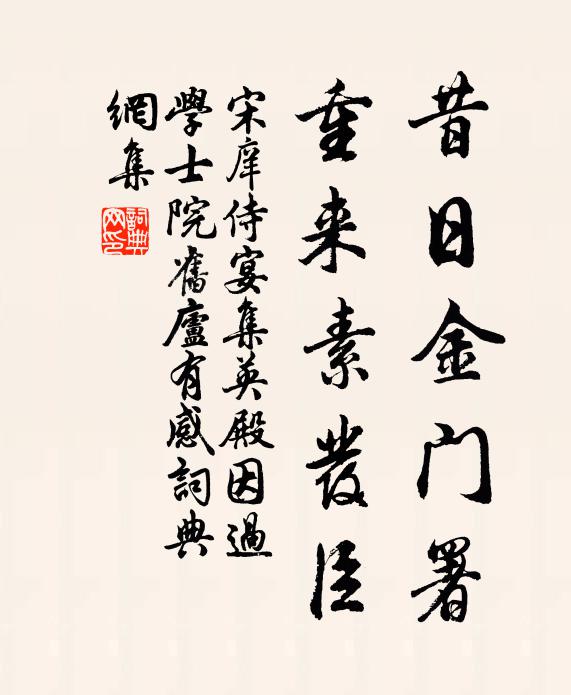 昔日金门署
重来素發臣
宋庠侍宴集英殿因過
學士院舊廬有感詞典
網集
詞典网印